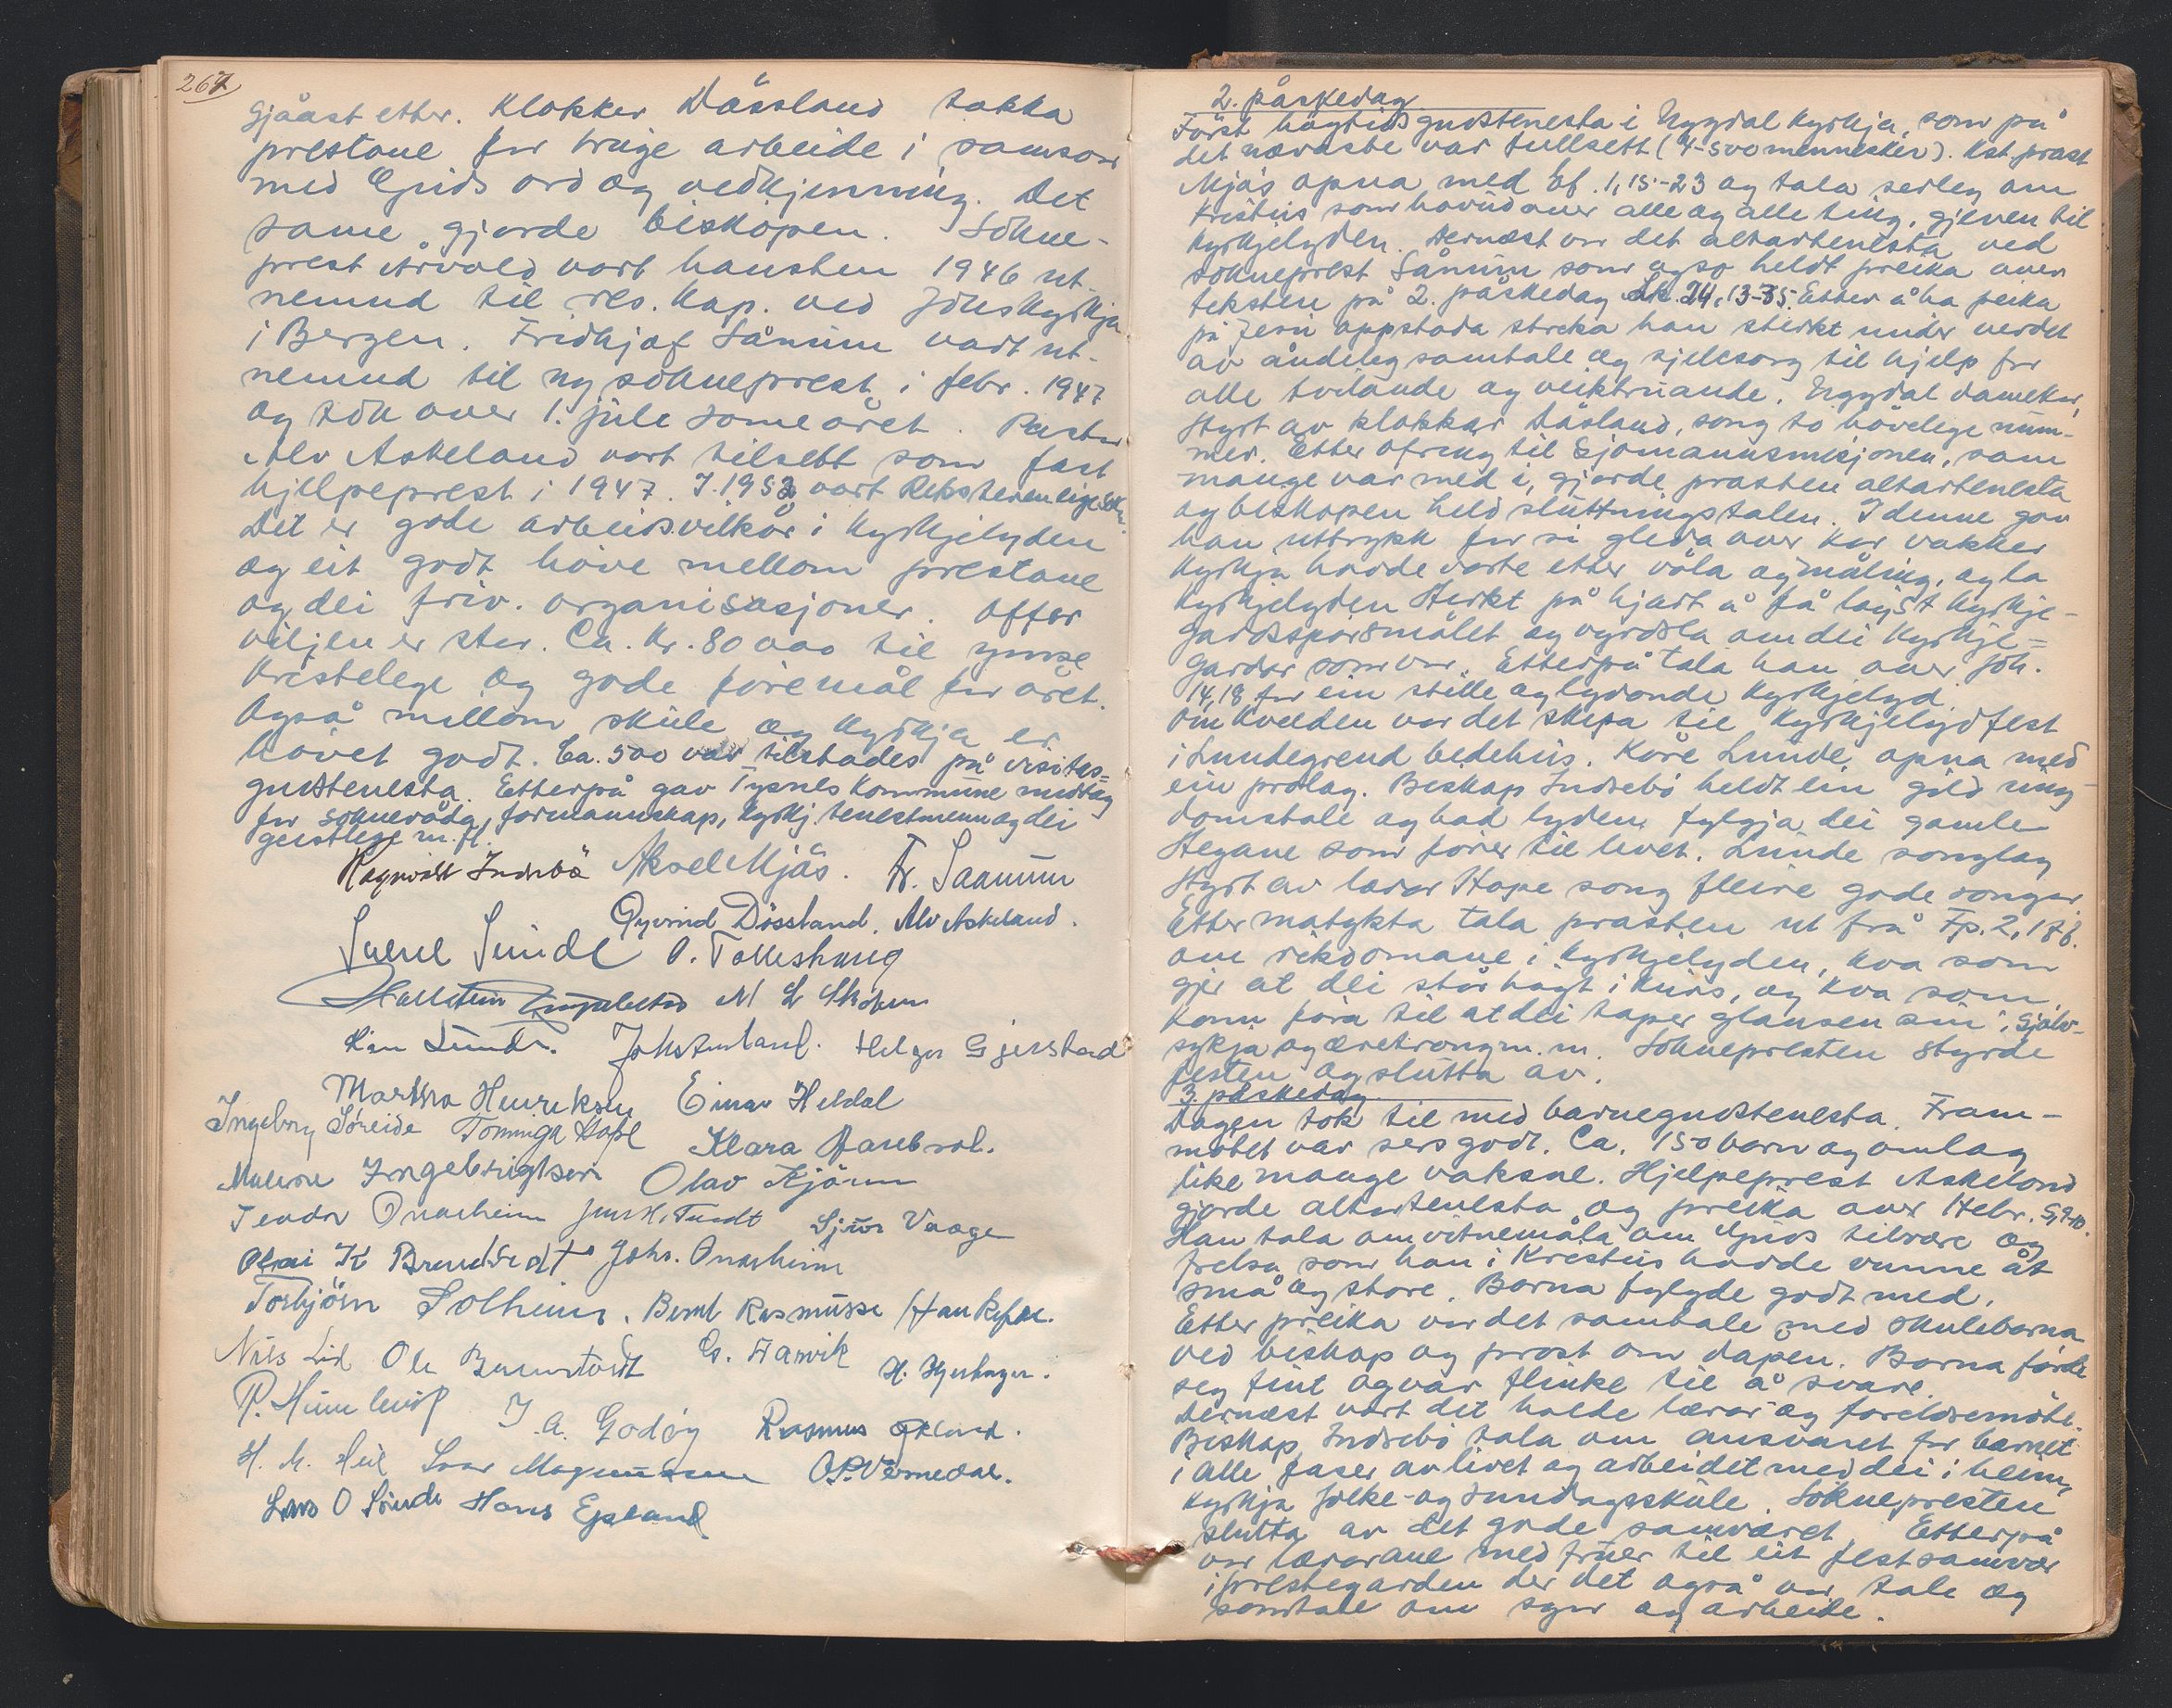 267
gjåast etter. Klokkar Dåssland takka
prestane for truge arbeide i samsvar
med Guds ord og vedkjenning. Det
same gjorde biskopen. Sökne-
prest Årvold vart hausten 1946 ut-
nemnd til res. kap. ved Jonskyrkja
i Bergen. Fridtjof Sånum vart ut-
nemnd til ny sokneprest i febr. 1947
og tok over 1. juli same året. Pastor
Alv Askeland vart tilsett som fast
hjelpeprest i 1947. I 1952 vart Reksteren eige sokn.
Det er gode arbeidsvilkår i kyrkjelyden
og eit godt höve mellom prestane
og dei friv. organisasjoner. Offer
viljen er stor. Ca. kr. 80 000 til ymse
kristelege og gode föremål for året.
Også mellom skule og kyrkja er
hövet godt. Ca. 500 var tilstades på visitas=
gudstenesta. Etterpå gav Tysnes kommune middag
for sokneråda, formannskap, kyrkj. tenestmenn og dei
geistlege m. fl.
Ragnvald Indrebö Aksel Mjås. Fr. Saanum
Öyvind Dåssland. Alv Askeland.
Sverel Sunde O. Tolleshaug
Hallstein Engelstad M L Sköien
Lunde. Helge Gjerstad
Martha Henriksen Einar Heldal
Ingeborg Söreide Tominga Hope Klara
Ingebrigtsen Olav Kjönn
Teodor Onarheim Jens H. Tundt Sjur Vaage
Olai K Brendsedt Johs. Onarheim
Torbjörn Solheim. Bernt Rasmusse Haukefær.
Nils Lid Ole G. Warvik H.
P. Humlevik J. A. Godöy Rasmus Økland.
H. M. Heie Lars Magnussen O.P. Vernedal.
Lars O Sunde Hans Epland
2. påskedag.
Först högtidsgudstenesta i Uggdal kyrkja, som på
det nærmaste var fullsett (4-500 mennesker). Kst. prost
Mjås opna med Ef. 1, 15-23 og tala serleg om
Kristus som hovud over alle og alle ting, gjeven til
kyrkjelyden. Dernæst var det altartenesta ved
sokneprest Sånum som også heldt preika over
teksten på 2. påskedag Lk. 24, 13-35. Etter å ha peika
på Jesu oppstoda streka han sterkt under verdet
av åndeleg samtale og sjelesorg til hjelp for
alle tvilande og veiktruande. Uggdal damekor,
styrt av klokkar Dåsland, song to hövelege num-
mer. Etter ofring til Sjömannsmisjonen, som
mange var med i, gjorde prosten altartenesta
og biskopen held sluttningstalen. I denne gav
han uttrykk for si gleda over kor vakker
kyrkja hadde vorte etter völa og måling, og la
kyrkjelyden sterkt på hjart å få löyst kyrkje-
gardsspörsmålet og vyrdsla om dei kyrkje=
gardar som var. Etterpå tala han over Joh.
14, 18 for ein stille og lydande kyrkjelyd.
Om kvelden var det skipa til kyrkjelydfest
i Lundegrend bedehus. Kåre Lunde opna med
ein prolog. Biskop Indrebö heldt ein gild ung-
domstale og bad lyden fylgja dei gamle
stegane som förer til livet. Lunde songlag
styrt av lærar Hope song fleire gode songar.
Etter matykta tala prosten ut frå Fp. 2, 17 f.
om rikdomane i kyrkjelyden, kva som
gjer at dei står högt i kurs, og kva som
kann föra til at dei taper glansen sin, sjölv-
sykja og æretrong m. m. Soknepresten styrde
festen og slutta av.
3. påskedag.
Dagen tok til med barnegudstenesta. Fram-
mötet var sers godt. Ca. 150 born og omlag
like mange vaksne. Hjelpeprest Askeland
gjorde altartenesta og preika over Hebr. 5, 9-10.
Han tala om vitnemåla om Guds tilvære og
frelsa som han i Kristus hadde vunne åt
små og store. Borna fylgde godt med.
Etter preika var det samtale med skuleborna
ved biskop og prost om dåpen. Borna förde
seg fint og var flinke til å svare.
Dernæst vart det halde lærar og foreldremöte.
Biskop Indrebö tala om ansvaret for barnet
i alle faser av livet og arbeidet med dei i heim,
kyrkja folke- og sundagsskule. Sokneprosten
slutta av det gode samværet. Etterpå
var lærarane med fruer til eit festsamvær
i prestegarden der det også var tale og
samtale om syn og arbeide.